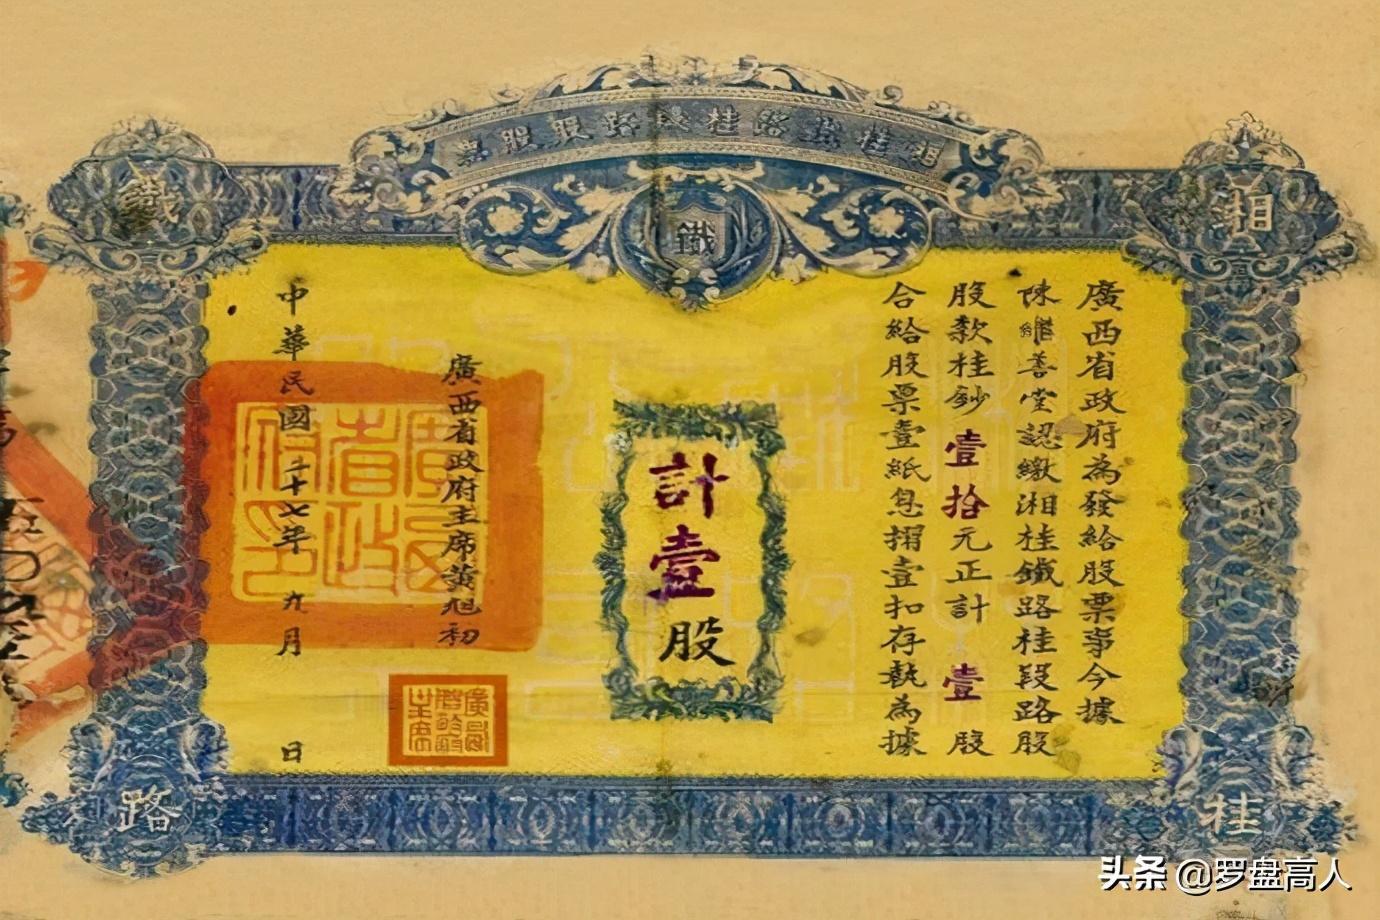 湘桂鐵路桂段路股股票
鐵
湘
桂
鐵
路
廣西省政府為發給股票事今據
陳繼善堂認繳湘桂鐵路桂段路股
股款桂鈔壹拾元正計壹股
合給股票壹紙息摺壹扣存執為據
計壹股
廣西省政府主席黃旭初
中華民國二十七年九月 日
廣西省政府印
頭条 @罗盘高人